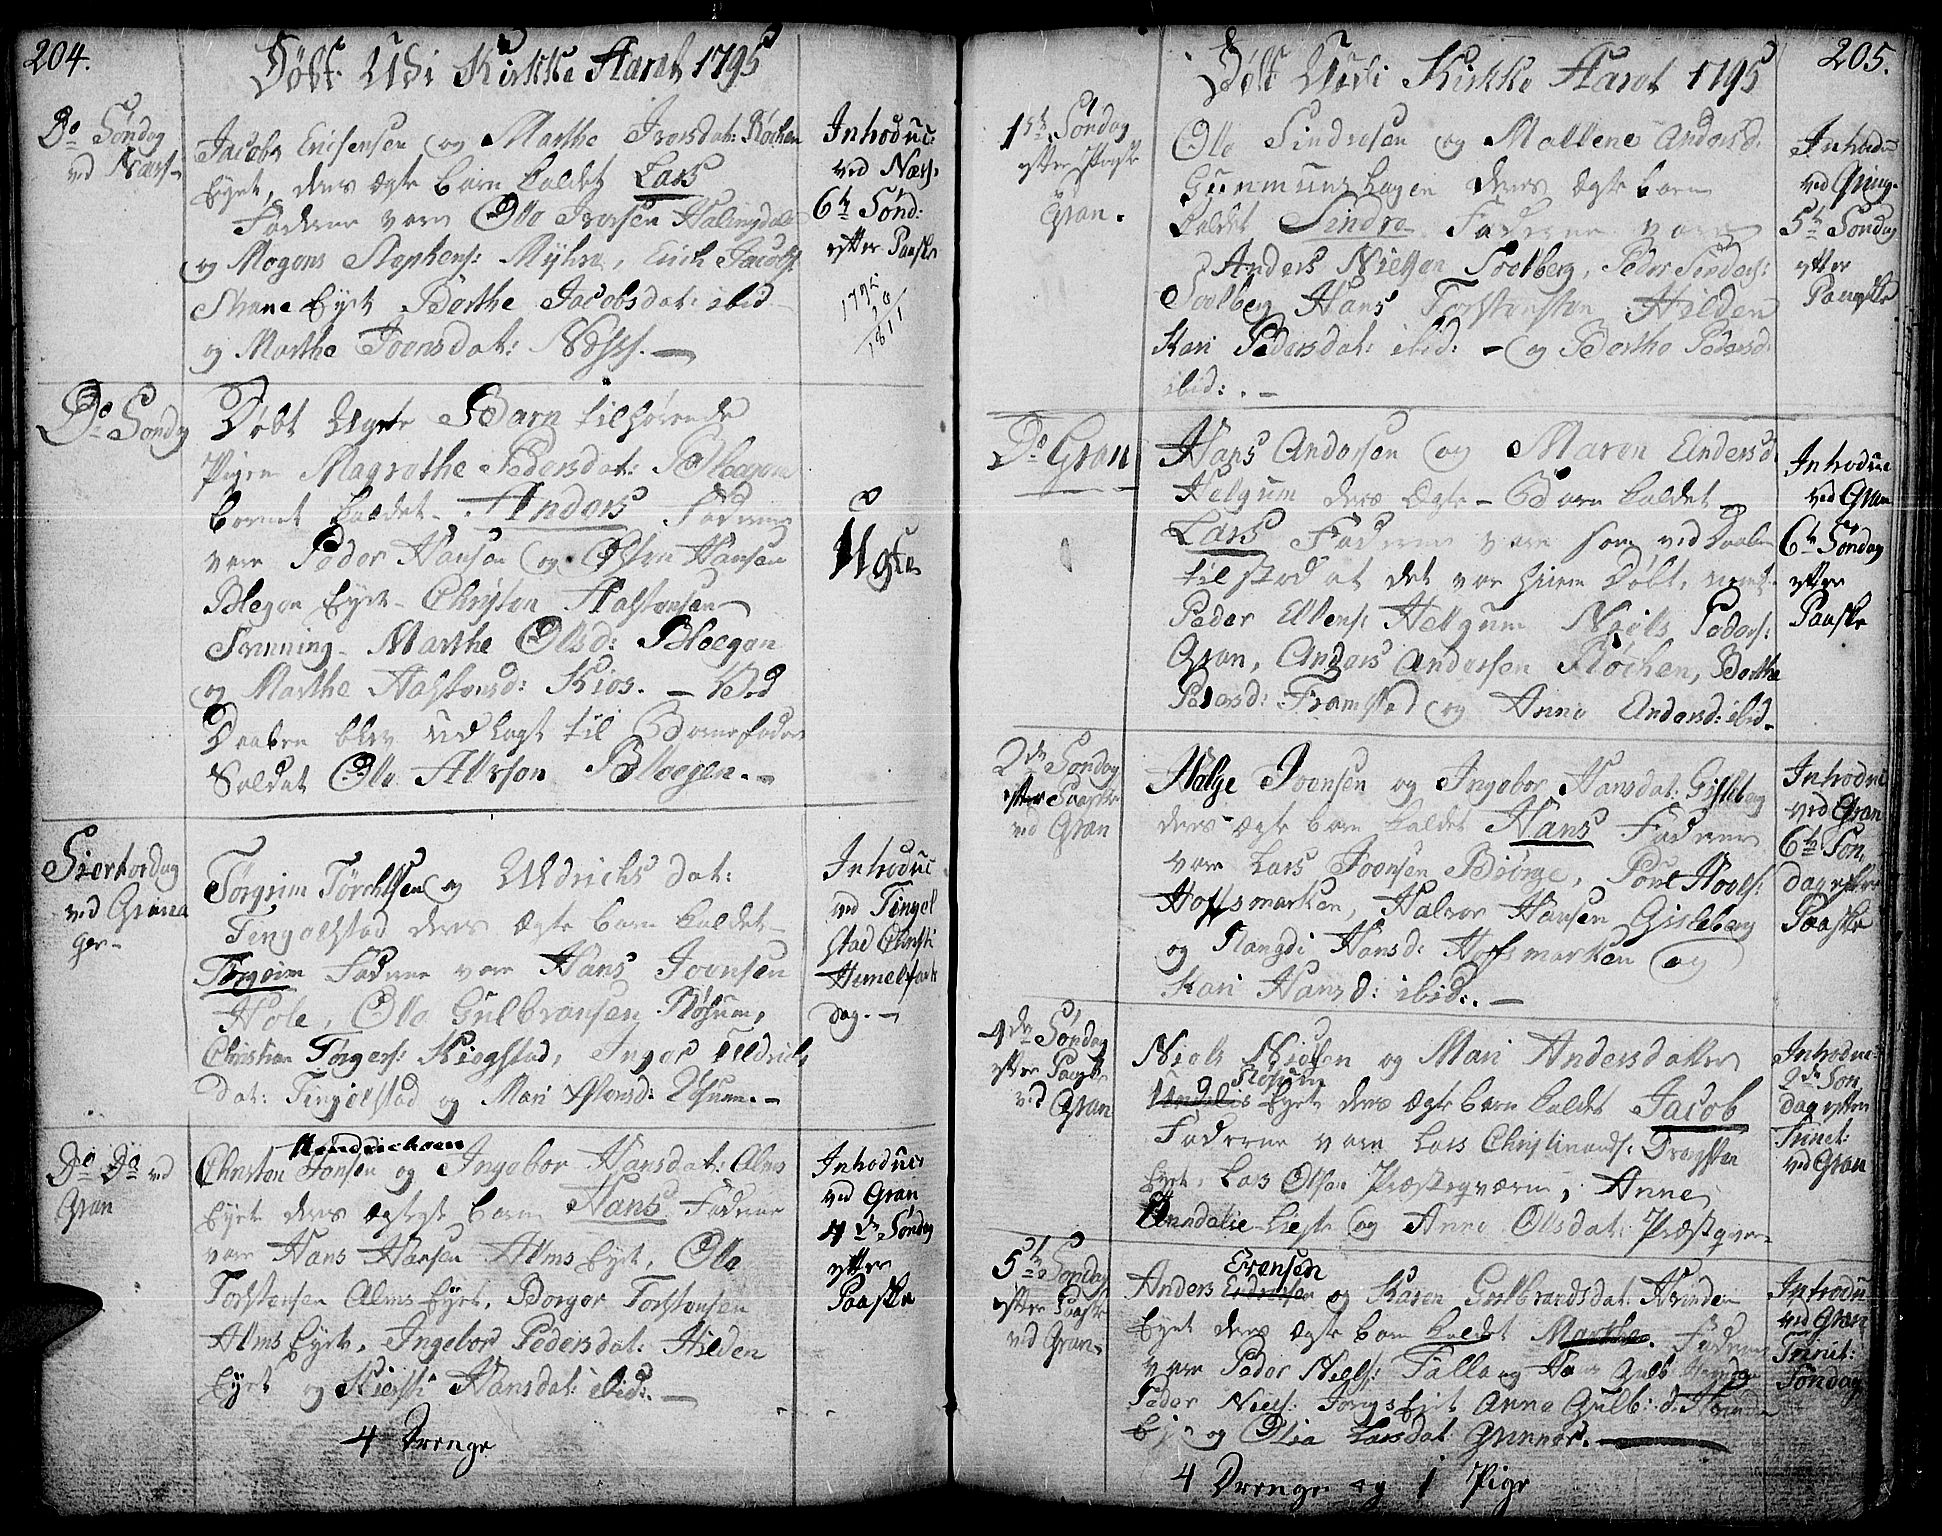 204.
Døbt Udi Kirkke Aaret 1795
Do Søndag
ved Næss
Jacob Ericsensen og Marthe Iversdat: Røchen
Eyet, deres ægte barn kaldet Lars
Fadderne vare Ole Iversen Halingdal
og Mogens Stephens: Myhre, Erich Jacobs:
Eyet Berthe Jacobsdat: ibid
og Marthe Joensdat: Næss. —
Introduc:
ved Næss:
6te Sønd:
efter Paaske
1795
1811
Do Søndag
Døbt Uægte Barn tilhørende
Pigen Magrethe Pedersdat: Bleegen
barnet kaldet Anders Fadderne
vare Peder Hansen og Hansen
Blegen Eyet Christen Halstensen
Svenning Marthe Olsd: Bleegen
og Marthe Halstensd: Kios. — Ved
Daaben blev udlagt til Barnefader
Soldat Ole Alfson Bleegen. —
Uægte
Skiertorsdag
ved Grina
ger
Torgrim Torchelsen og Uldrichsdat:
Tengelstad deres ægte barn kaldet
Torgrim Fadderne vare Hans Joensen
Hole, Ole Gulbransen Røhum,
Christian Torgers: Kiogstad, Inger Uldrichs
dat: Tingelstad og Mari
Introduc
ved Tingel
stad Christi
Himelfarts
dag. —
Do Do ved
Gran
Hendrichsen
Christen Hansen og Ingebor Hansdat: Alms
Eyet deres ægte barn Hans Fadderne
vare Hans Hansen Alms Eyet, Ole
Torstensen Alms Eyet, Borger Torstensen
Alms Eyet, Ingebor Pedersdat: Hilden
Eyet og Kiersti Hansdat: ibid: —
Introduc
ved Gran
4de Søndag
efter
Paaske
4 Drenge
205.
Døbt Udi Kirkke Aaret 1795
1ste Søndag
efter Paaske
v
Gran.
Ole Sindresen og Mallene Andersd:
Gunmunshagen deres ægte barn
kaldet Sindre Fadderne vare
Anders Nielsen Soelberg, Peder Sinders:
Soelberg Hans Torstensten Hilden
Kari Pedersdat: ibid: — og Berthe Pedersd:
ibid: . —
Introdu
ved
5te Søndag
efter
Paaske
Do Gran
Hans Andersen og Maren Endersd.
Helgum deres ægte Barn kaldet
Lars Fadderne vare som ved Daaben
tilstod at det var hiemme Døbt,
Peder Ellens: Helgum Niels Peders:
Gran, Anders Andersen Røchen, Berthe
Pedersd: Framstad og Anne Endersd: ibid
Introduc
ved Gran
6te Søndag
efter
Paaske
2de Søndag
efter Paaske
ved Gran
Helge Joensen og Ingebor Hansdat: Gisleberg
deres ægte barn kaldet Hans Fadderne
vare Lars Joensen Biørge, Poul Hoels:
Hoffsmarken, Halvor Hansen Gisleberg
og Rangdi Hansd: Hoffsmarken og
Kari Hansd: ibid: . —
Introdu
ved Gran
6te Søn
dag efter
Paaske
4de Søndag
efter Paaske
ved Gran
Niels Nielsen og Mari Andersdatter
Røhum
Eyet deres ægte barn kaldet Jacob
Fadderne vare Lars Christiansds: Dragsten
Eyet, Lars Olsen Præsteqværn, Anne
Enndelie Lieste og Anne Olsdat: Præstqver
Introduc
2de Søn
dag efter
Trinit:
ved Gran
5te Søndag
efter Paaske
ved Gran
Evensen
Anders og Karen Gulbrandsdat: Hvinden
Eyet deres ægte barn kaldet Marthe. Fadderne
vare Peder Niels: Falla og Gulb
Peder Niels: Eyet Anne Gulb: d:
Eye og Olia Larsdat Grinner. —
Introdu
ved Gran
Trinit:
Søndag
4 Drenge og 1 Pige